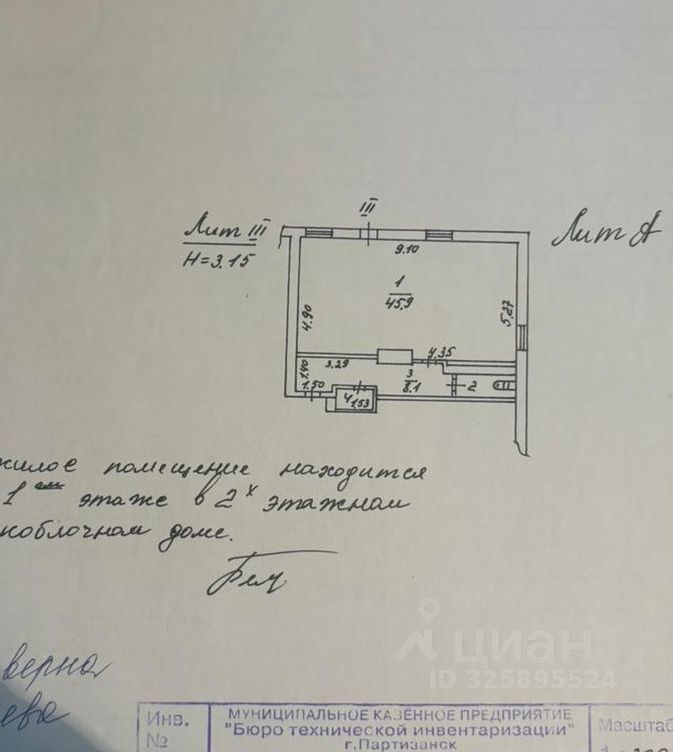 III
Лит III
H=3.15
Лит А
9.10
1
45,9
4.90
5.27
3.29
4.35
1.40
1.50
3
8.1
2
4
1,53
жилое помещение находится
1ом этаже в 2х этажном
коблочном доме.
верна
ева
циан
ID 325895524
Инв.
№
МУНИЦИПАЛЬНОЕ КАЗЁННОЕ ПРЕДПРИЯТИЕ
"Бюро технической инвентаризации"
г.Партизанск
Масштаб